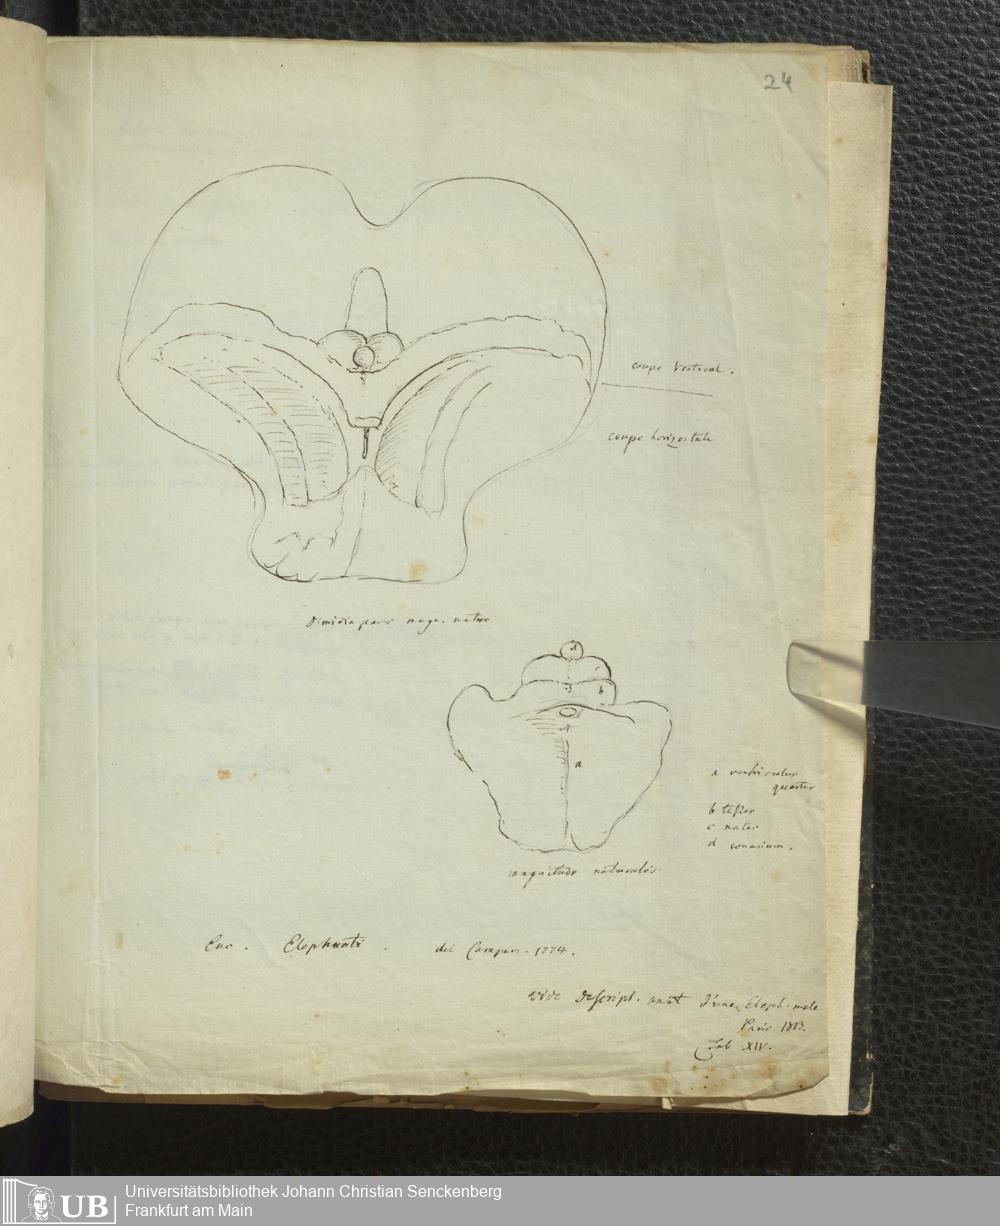 24
coupe vertical.
coupe horizontale
Dimidia pars magn. natur
d
c
b
a
a ventriculus
quartus
b testes
c nates
d conarium.
magnitudo naturalis
Enc. Elephanti. del Camper. 1774.
vide Descript. anat d'une Eleph. male
Paris 1803.
Tab XIV.
UB
Universitätsbibliothek Johann Christian Senckenberg
Frankfurt am Main